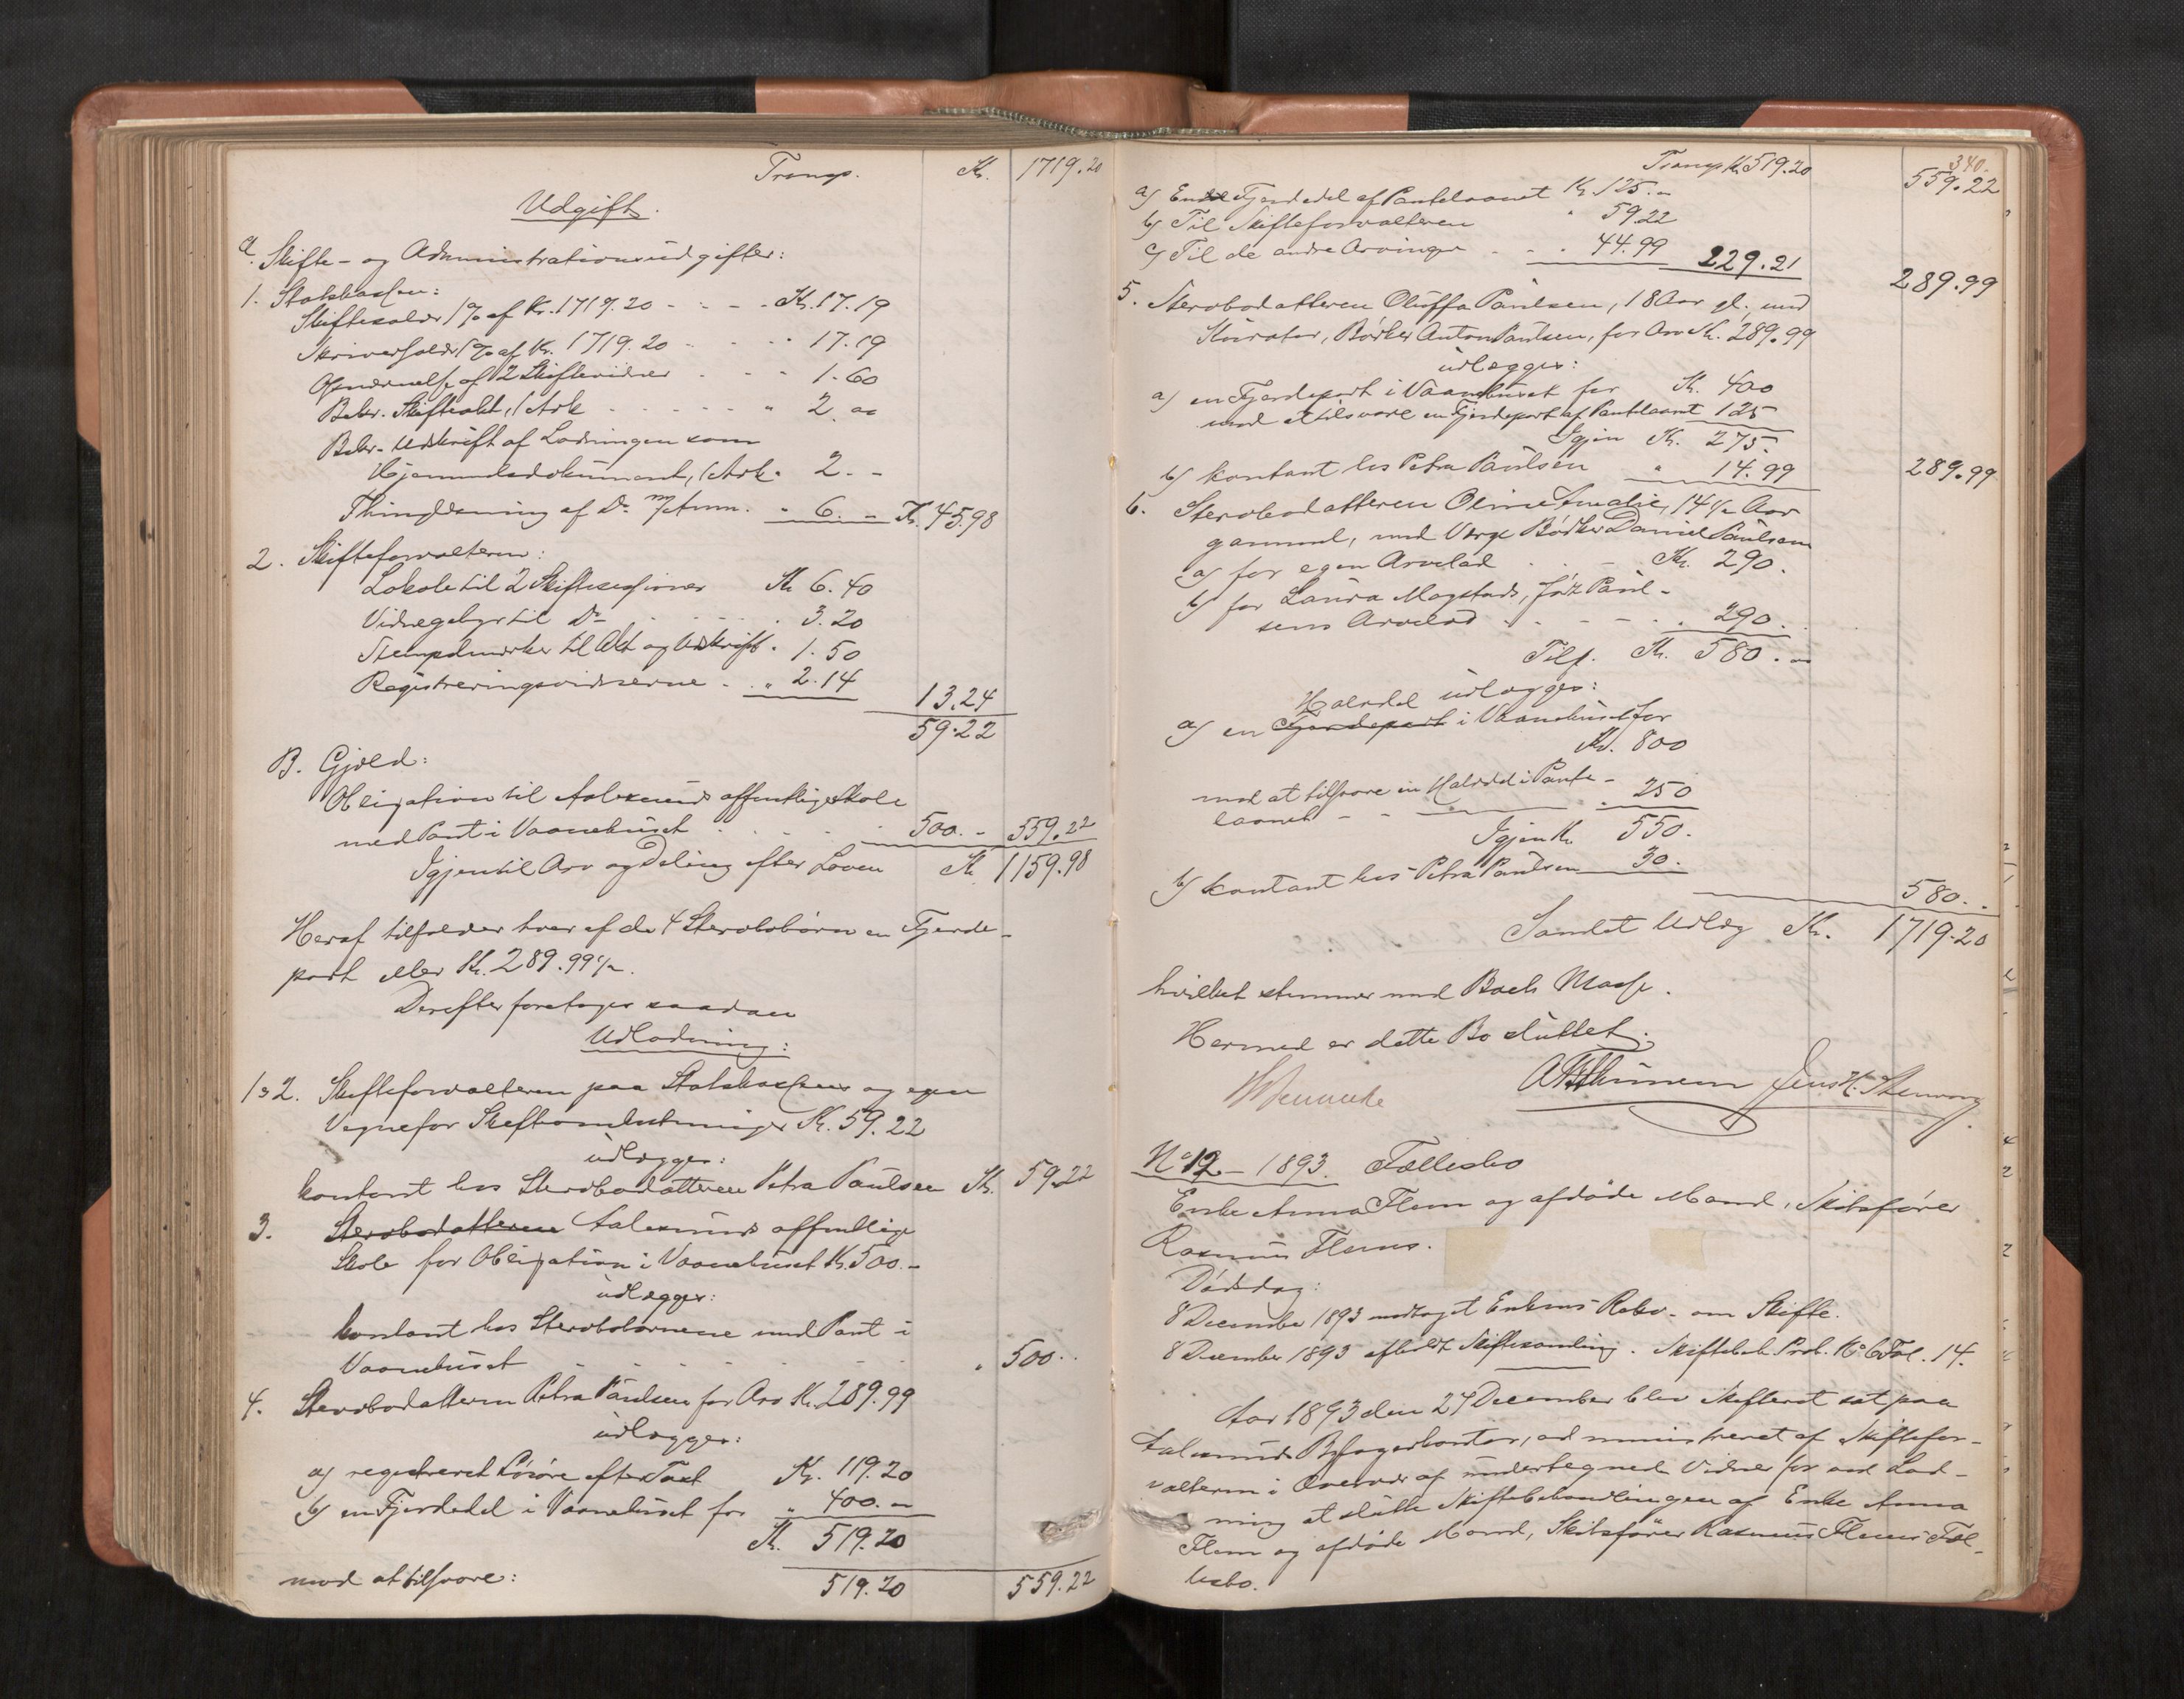 Transp. Kr. 1719.20
Udgift.
A. Skifte- og Administrationsudgifter:
1. Statskassen:
Skiftesalær 1% af Kr. 1719.20 - - - Kr. 17.19
Skriversalær 1% af Kr. 1719.20 - - - 17.19
Opnævnelse af 2 Skiftevidner - - - 1.60
Bekr. Skifteakt, 1 Ark - - - " 2.00
Bekr. Udskrift af Lodningen som
Hjemmelsdokument, 1 Ark " 2.-
Thinglæsning af Do m/Anm. " 6.- Kr. 45.98
2. Skifteforvalteren:
Lokale til 2 Skiftesessioner Kr 6.40
Vidnegebyr til Do . . . . 3.20
Stempelmerker til Akt og Udskrift " 1.50
Registreringsvidnerne - " 2.14 13.24
59.22
B. Gjæld:
Obligation til Aalesunds offentlige Skole
med Pant i Vaanehuset . . . 500.- 559.22
Igjen til Arv og Deling efter Loven Kr. 1159.98
Heraf tilfalder hver af de 4 Stervbobørn en Fjerde-
part eller Kr. 289.99½.
Derefter foretoges saadan
Udlodning:
1 & 2. Skifteforvalteren paa Statskassens og egne
Vegne for Skifteomkostninger Kr. 59.22
udlægges:
kontant hos Stervbodatteren Petra Paulsen Kr. 59.22
3. Stervbodatteren Aalesunds offentlige
Skole for Obligation i Vaanehuset Kr. 500.-
udlægges:
kontant hos Stervbobørnene med Pant i
Vaanehuset - - - - " 500..
4. Stervbodatteren Petra Paulsen for Arv Kr. 289.99
udlægges:
a) registreret Løsøre efter Taxt Kr. 119.20
b) en Fjerdedel i Vaanehuset for " 400.-
Kr. 519.20
mod at tilsvare: 519.20 559.22
340.
Transp. Kr. 519.20 559.22
a) En Fjerdedel af Pantelaanet Kr. 125.-
b) Til Skifteforvalteren " 59.22
c) Til de andre Arvinger - - . 44.99 229.21 289.99
5. Stervbodatteren Oluffa Paulsen, 18 Aar gl. med
Kurator, Bødker Anton Paulsen, for Arv Kr. 289.99
udlægges:
a) en Fjerdepart i Vaanehuset for Kr. 400
mod at tilsvare en Fjerdepart af Pantelaanet 125
Igjen Kr. 275.
b) kontant hos Petra Paulsen " 14.99 289.99
6. Stervbodatteren Oline Amalie, 14½ Aar
gammel, med Verge Bødker Daniel Paulsen
a) for egen Arvelod . . - Kr. 290.
b) for Laura Magstads, født Paul-
sens Arvelod . . - - . 290..
Tils. Kr. 580.-
udlægges:
Halvdel
a) en Fjerdepart i Vaanehuset for
Kr. 800
mod at tilsvare en Halvdel i Pante-
laanet - - . 250
Igjen Kr. 550.
b) kontant hos Petra Paulsen 30. 580..
Samlet Udlæg Kr. 1719.20
hvilket stemmer med Boets Masse.
Hermed er dette Bo sluttet.
Jens H. Stenvaag
No 12 - 1893. Fællesbo
Enke Anna Flem og afdøde Mand, Skibsfører
Rasmus Flems.
Dødsdag:
8 December 1893 modtaget Enkens Rekv. om Skifte.
8 December 1893 afholdt Skiftesamling. Skiftebeh. Prot. No 6 Fol. 14.
Aar 1893 den 27 December blev Skifteret sat paa
Aalesunds Byfogedkontor, administreret af Skiftefor-
valteren i Overvær af undertegnede Vidner for ved Lod-
ning at slutte Skiftebehandlingen af Enke Anna
Flem og afdøde Mand, Skibsfører Rasmus Flems Fæl-
lesbo.